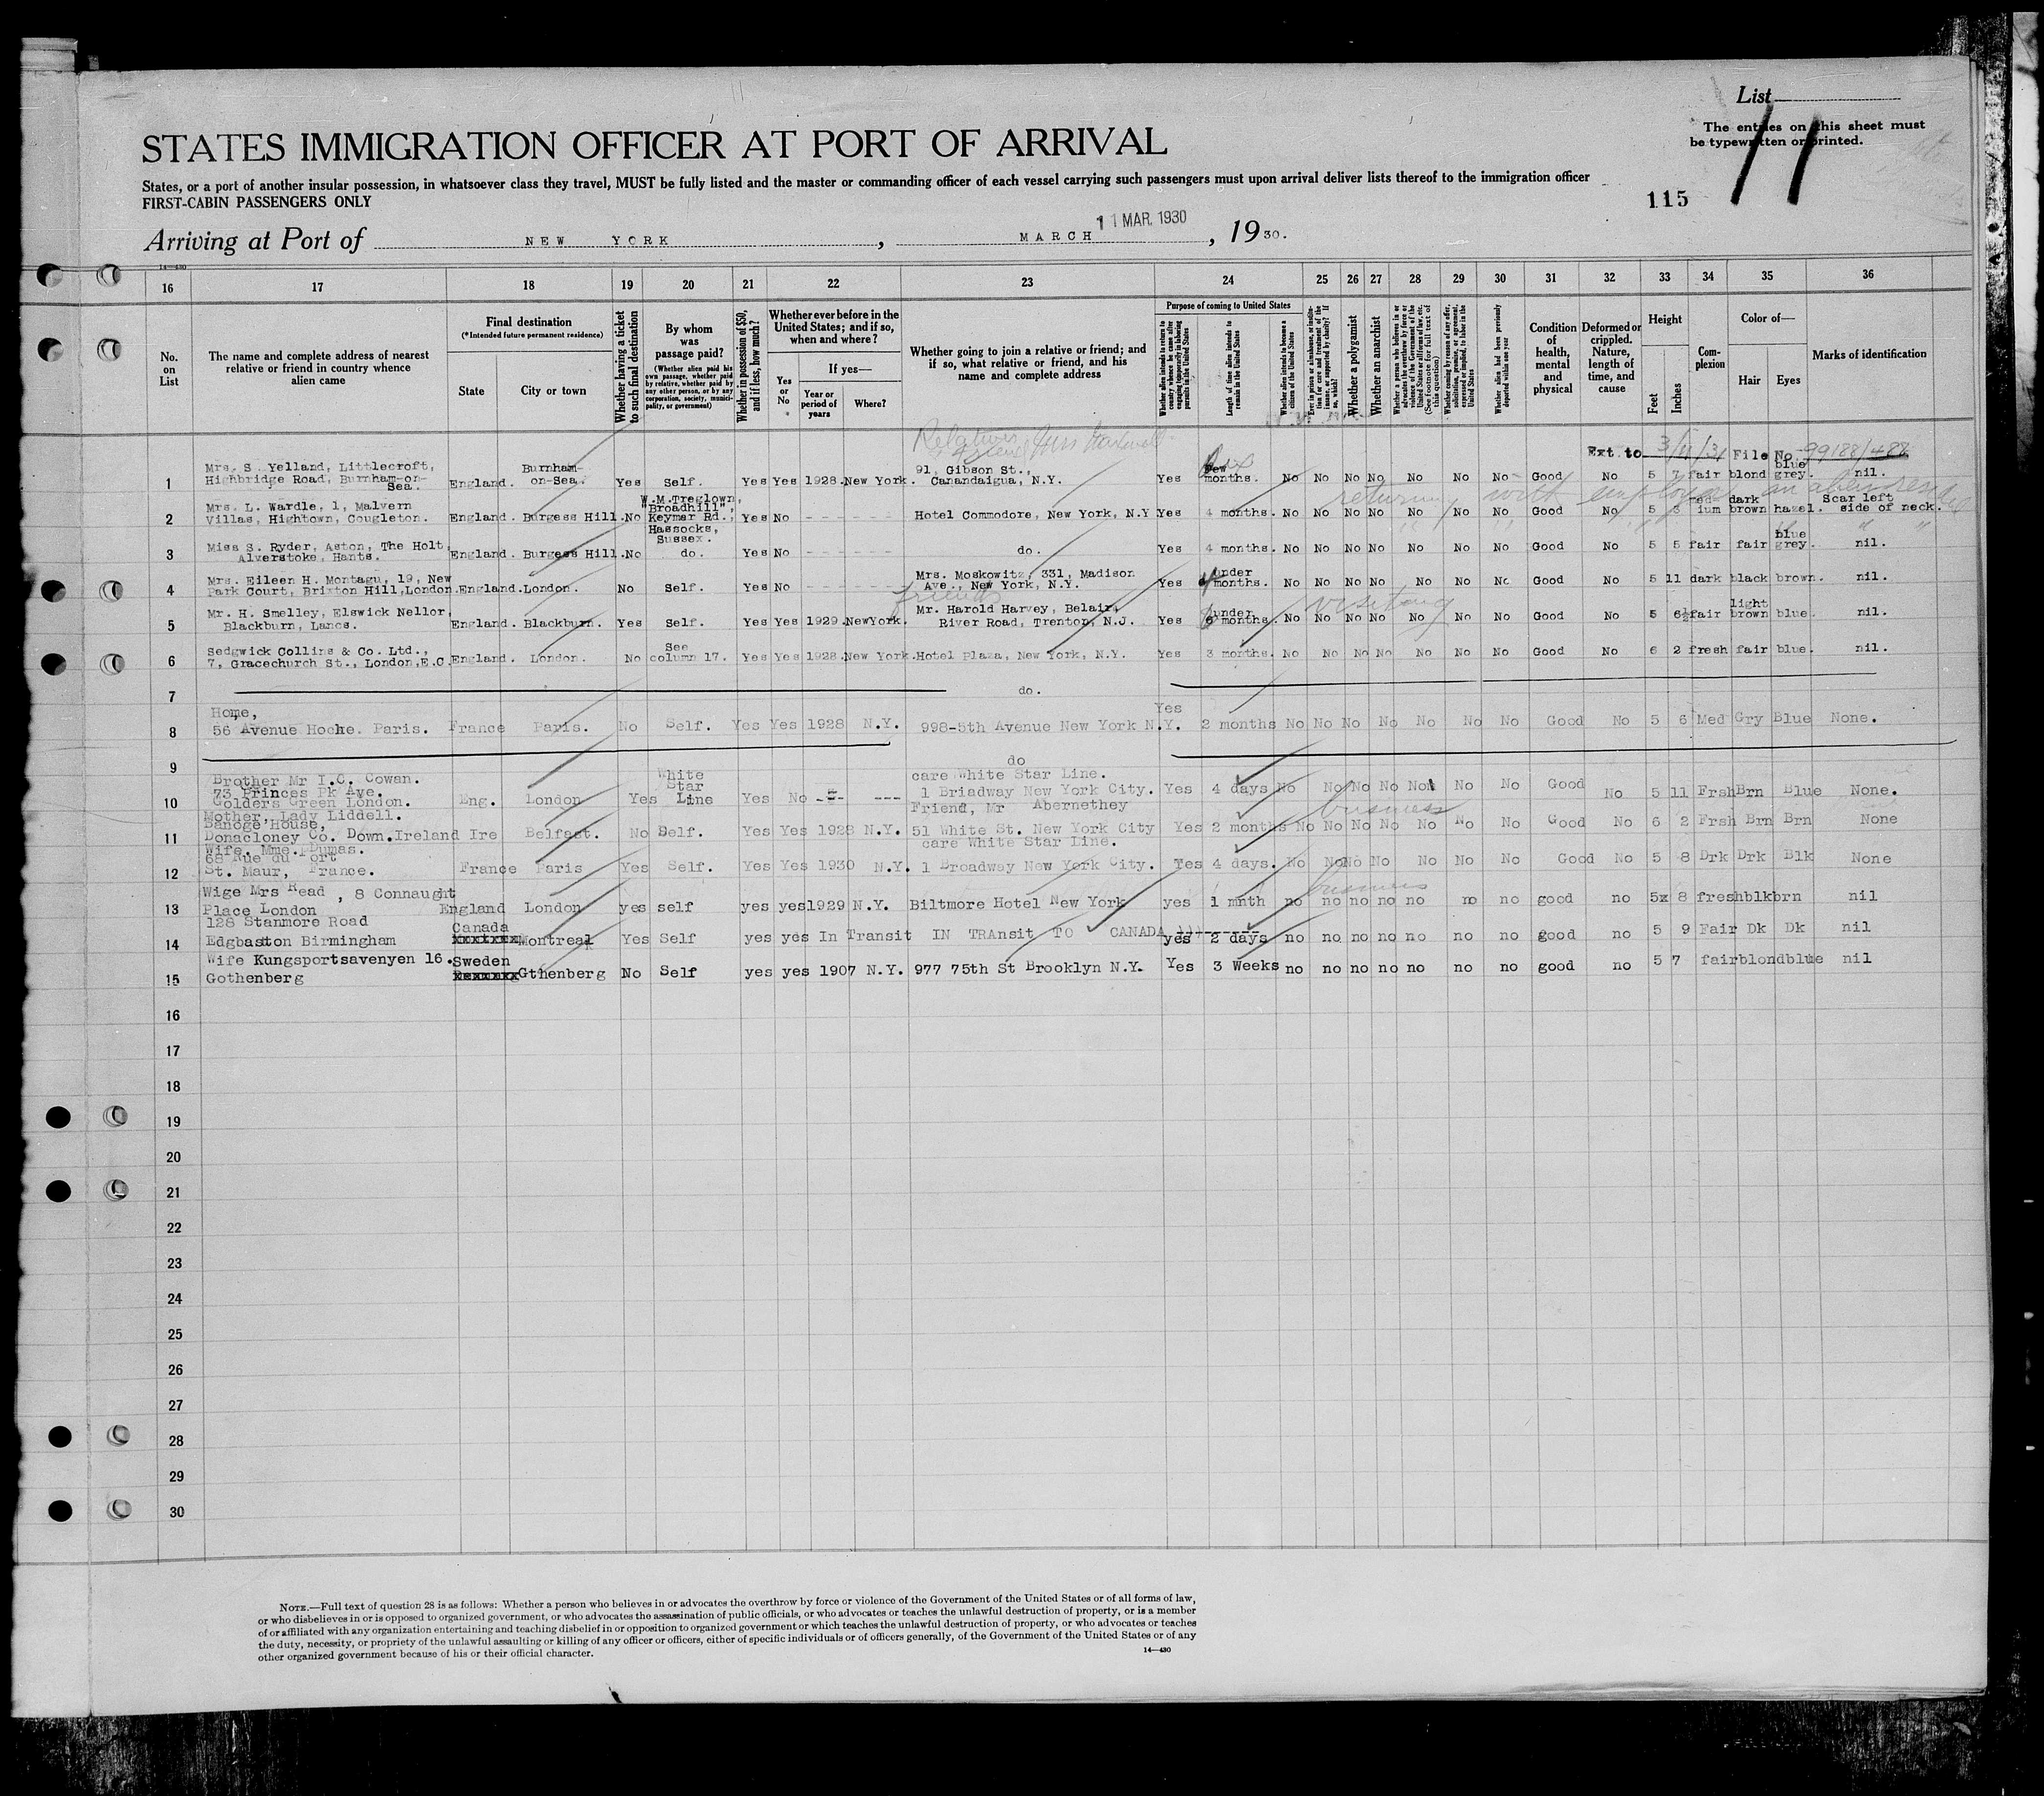 List
The entries on this sheet must
be typewritten or printed.
11
115
STATES IMMIGRATION OFFICER AT PORT OF ARRIVAL
States, or a port of another insular possession, in whatsoever class they travel, MUST be fully listed and the master or commanding officer of each vessel carrying such passengers must upon arrival deliver lists thereof to the immigration officer
FIRST-CABIN PASSENGERS ONLY
Arriving at Port of NEW YORK, MARCH 11 MAR. 1930, 1930.
14—430
16 17 18 19 20 21 22 23 24 25 26 27 28 29 30 31 32 33 34 35 36
No. on List
The name and complete address of nearest relative or friend in country whence alien came
Final destination
(*Intended future permanent residence)
State
City or town
Whether having a ticket to such final destination
By whom was passage paid?
(Whether alien paid his own passage, whether paid by relative, whether paid by any other person, or by any corporation, society, municipality, or government)
Whether in possession of $50, and if less, how much?
Whether ever before in the United States; and if so, when and where?
Yes or No
If yes—
Year or period of years
Where?
Whether going to join a relative or friend; and if so, what relative or friend, and his name and complete address
Purpose of coming to United States
Whether alien intends to return to country whence he came after engaging temporarily in laboring pursuits in the United States
Length of time alien intends to remain in the United States
Whether alien intends to become a citizen of the United States
Ever in prison or almshouse, or institution for care and treatment of the insane, or supported by charity? If so, which?
Whether a polygamist
Whether an anarchist
Whether a person who believes in or advocates the overthrow by force or violence of the Government of the United States or all forms of law, etc. (See footnote for full text of this question)
Whether coming by reason of any offer, solicitation, promise, or agreement, expressed or implied, to labor in the United States
Whether alien had been previously deported within one year
Condition of health, mental and physical
Deformed or crippled. Nature, length of time, and cause
Height
Feet
Inches
Complexion
Color of—
Hair
Eyes
Marks of identification
Relatives
Ext. to 3/11/31 File No. 99188/488
1 Mrs. S. Yelland, Littlecroft, Highbridge Road, Burnham-on-Sea. England. Burnham-on-Sea. Yes Self. Yes Yes 1928. New York. 91, Gibson St., Canandaigua, N.Y. Yes six months. No No No No No No No Good No 5 7 fair blond blue grey. nil.
returning with employer an alien resident
2 Mrs. L. Wardle, 1, Malvern Villas, Hightown, Cougleton. England. Burgess Hill. No W.M.Treglown, "Broadhill", Keymar Rd., Hassocks, Sussex. Yes No - - - - - - Hotel Commodore, New York, N.Y. Yes 4 months. No No No No No No No Good No 5 3 medium dark brown hazel. Scar left side of neck.
3 Miss S. Ryder, Aston, The Holt, Alverstoke, Hants. England. Burgess Hill. No do. Yes No - - - - - - do. Yes 4 months. No No No No No No No Good No 5 5 fair fair blue grey. nil.
4 Mrs. Eileen H. Montagu, 19, New Park Court, Brixton Hill, London. England. London. No Self. Yes No - - - - - - Mrs. Moskowitz, 331, Madison Ave., New York, N.Y. Yes under 4 months. No No No No No No No Good No 5 11 dark black brown. nil.
friends visiting
5 Mr. H. Smelley, Elswick Nellor, Blackburn, Lancs. England. Blackburn. Yes Self. Yes Yes 1929. NewYork. Mr. Harold Harvey, Belair, River Road, Trenton, N.J. Yes under 6 months. No No No No No No No Good No 5 6½ fair light brown blue. nil.
6 Sedgwick Collins & Co. Ltd., 7, Gracechurch St., London, E.C. England. London. No See column 17. Yes Yes 1928. New York. Hotel Plaza, New York, N.Y. Yes 3 months. No No No No No No No Good No 6 2 fresh fair blue. nil.
7 do.
8 Home, 56 Avenue Hoche. Paris. France Paris. No Self. Yes Yes 1928 N.Y. 998-5th Avenue New York N.Y. Yes 2 months No No No No No No No Good No 5 6 Med Gry Blue None.
9 do
10 Brother Mr I.C. Cowan. 73 Princes Pk Ave. Golders Green London. Eng. London Yes White Star Line Yes No --- --- care White Star Line. 1 Briadway New York City. Yes 4 days No No No No No No No Good No 5 11 Frsh Brn Blue None.
business
11 Mother, Lady Liddell. Banoge House, Donacloney Co. Down. Ireland Ire Belfast. No Self. Yes Yes 1928 N.Y. Friend, Mr Abernethey 51 White St. New York City Yes 2 months No No No No No No No Good No 6 2 Frsh Brn Brn None
12 Wife. Mme. Dumas. 68 Rue du Port St. Maur, France. France Paris Yes Self. Yes Yes 1930 N.Y. care White Star Line. 1 Broadway New York City. Yes 4 days. No No No No No No No Good No 5 8 Drk Drk Blk None
business
13 Wige Mrs Read , 8 Connaught Place London England London yes self yes yes 1929 N.Y. Biltmore Hotel New York yes 1 mnth no no no no no no no good no 5x 8 fresh blk brn nil
14 128 Stanmore Road Edgbaston Birmingham Canada Montreal Yes Self yes yes In Transit IN TRAnsit TO CANADA yes 2 days no no no no no no no good no 5 9 Fair Dk Dk nil
15 Wife Kungsportsavenyen 16. Gothenberg Sweden Gthenberg No Self yes yes 1907 N.Y. 977 75th St Brooklyn N.Y. Yes 3 Weeks no no no no no no no good no 5 7 fair blond blue nil
16
17
18
19
20
21
22
23
24
25
26
27
28
29
30
NOTE.—Full text of question 28 is as follows: Whether a person who believes in or advocates the overthrow by force or violence of the Government of the United States or of all forms of law,
or who disbelieves in or is opposed to organized government, or who advocates the assassination of public officials, or who advocates or teaches the unlawful destruction of property, or is a member
of or affiliated with any organization entertaining and teaching disbelief in or opposition to organized government or which teaches the unlawful destruction of property, or who advocates or teaches
the duty, necessity, or propriety of the unlawful assaulting or killing of any officer or officers, either of specific individuals or of officers generally, of the Government of the United States or of any
other organized government because of his or their official character.
14—430